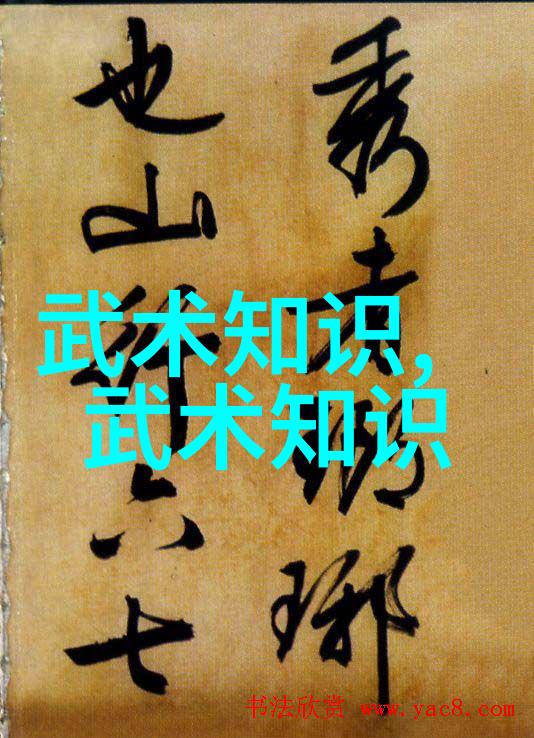 秀者瑯琊
也山行六七
武术知识,
武术知识
书法欣赏 www.yac8.com